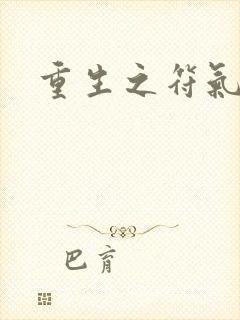 重生之符氣
巴育